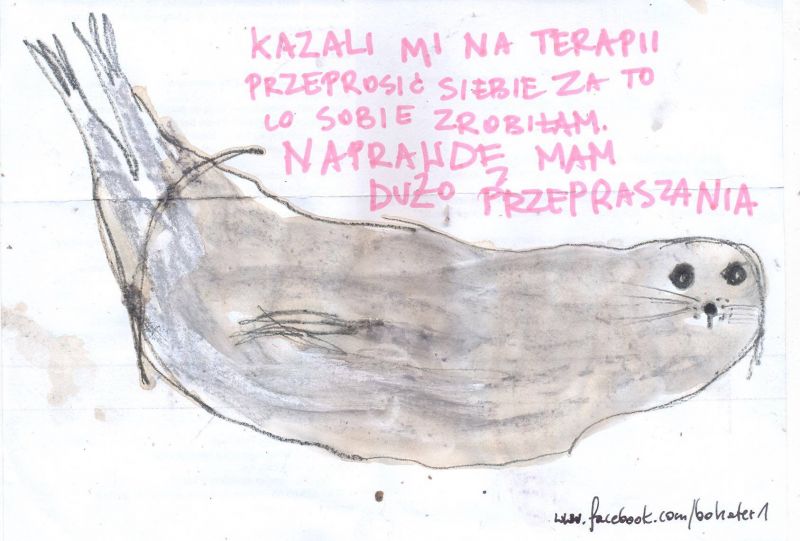 KAZALI MI NA TERAPII
PRZEPROSIĆ SIEBIE ZA TO
CO SOBIE ZROBIŁAM.
NAPRAWDĘ MAM
DUŻO Z PRZEPRASZANIA
www.facebook.com/bohater1